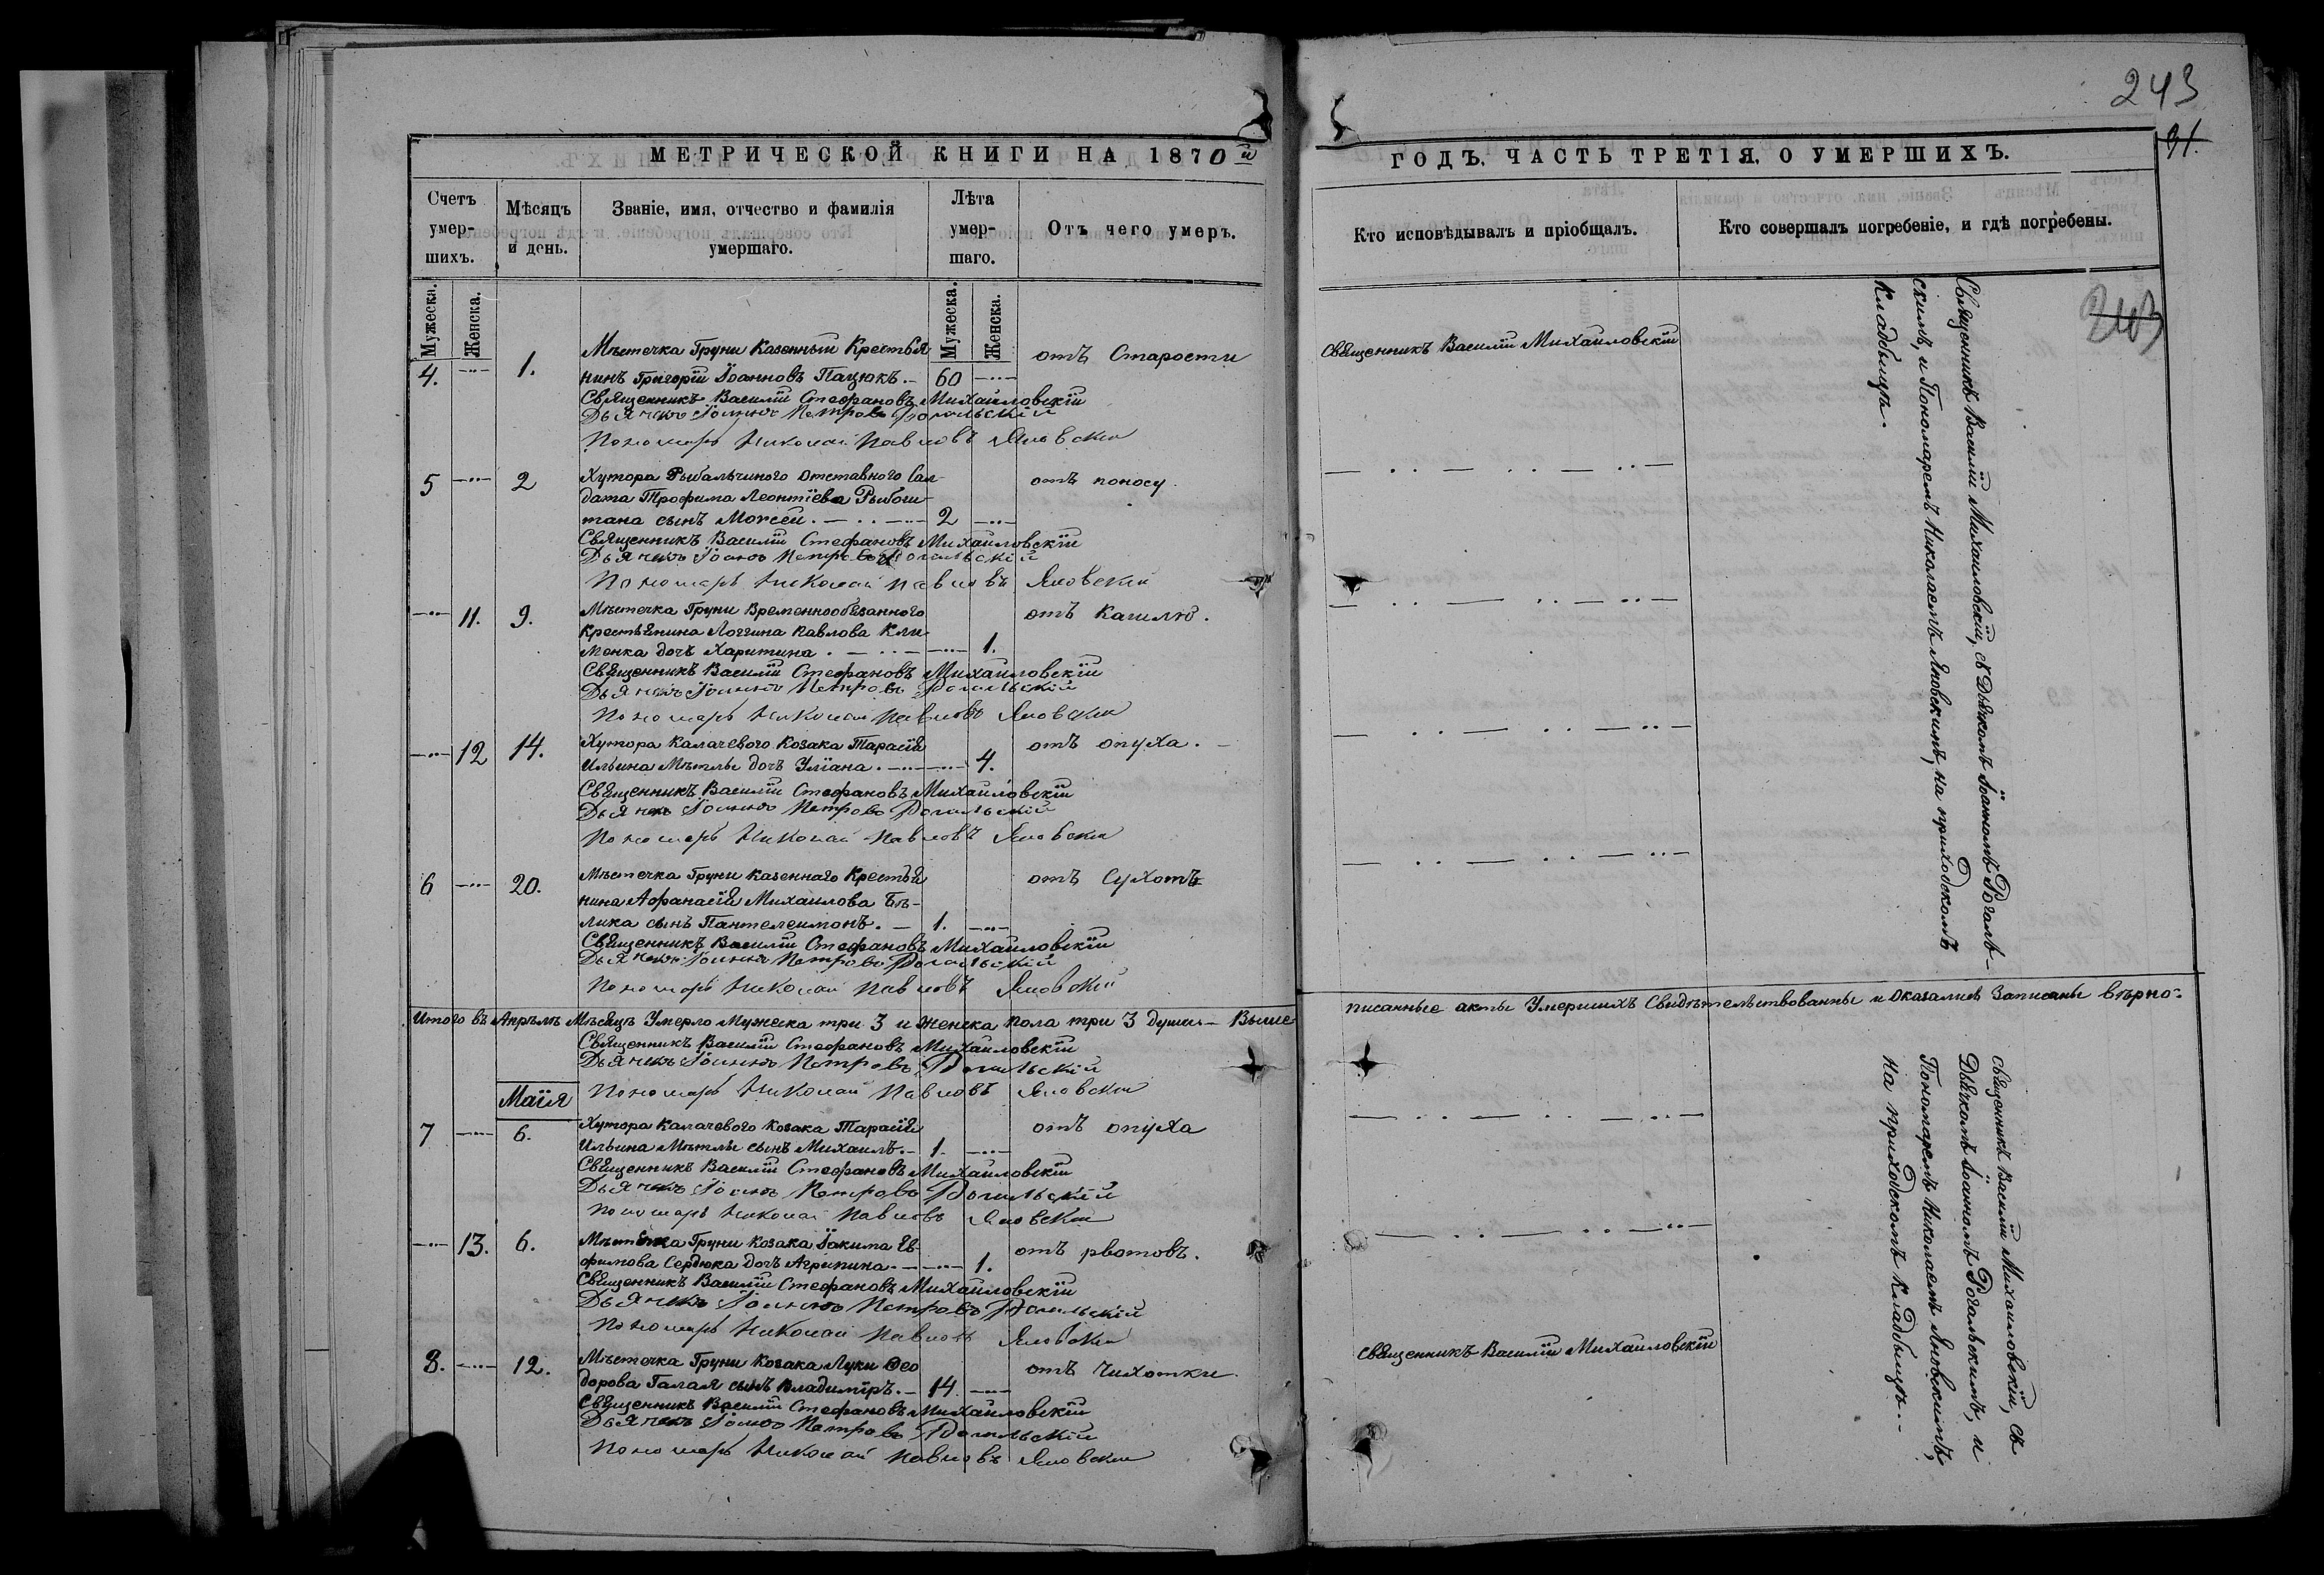 МЕТРИЧЕСКОЙ КНИГИ НА 1870 й
Счетъ умер-шихъ.
Мѣсяцъ и день.
Званіе, имя, отчество и фамилія умершаго.
Лѣта умер-шаго.
Отъ чего умеръ.
Мужеска.
Женска.
Мужеска.
Женска.
4. 1. Мѣстечка Груни Казенный Крестья отъ Старости
нинъ Григорій Іоанновъ Пацюкъ. 60
Священникъ Василій Стефановъ Михайловскій
Дьячекъ Іоаннъ Петровъ Рогальскій
Пономарь Николай Павловъ Яновскій
5 2 Хутора Рыбальчиного отставного Сол- отъ поносу
дата Трофима Леонтіева Рыбощ-
тана сынъ Моѵсей. 2
Священникъ Василій Стефановъ Михайловскій
Дьячекъ Іоаннъ Петровъ Рогальскій
Пономарь Николай Павловъ Яновскій
11. 9. Мѣстечка Груни Временнообязанного отъ Кашлю.
крестьянина Логгина Павлова Кли-
менка дочь Харитина. 1.
Священникъ Василій Стефановъ Михайловскій
Дьячекъ Іоаннъ Петровъ Рогальскій
Пономарь Николай Павловъ Яновскій
12 14. Хутора Калачевого Козака Тарасія отъ опуха.
Ильина Мѣтлы дочь Уліана. 4.
Священникъ Василій Стефановъ Михайловскій
Дьячекъ Іоаннъ Петровъ Рогальскій
Пономарь Николай Павловъ Яновскій
6 20. Мѣстечка Груни казеннаго Крестья отъ Сухотъ
нина Афанасія Михайлова Бѣ-
лика сынъ Пантелеимонъ. 1.
Священникъ Василій Стефановъ Михайловскій
Дьячекъ Іоаннъ Петровъ Рогальскій
Пономарь Николай Павловъ Яновскій
Итого въ Апрѣлѣ Мѣсяцѣ Умерло Мужеска три 3 и Женска пола три 3 душы Выше
Священникъ Василій Стефановъ Михайловскій
Дьячекъ Іоаннъ Петровъ Рогальскій
Пономарь Николай Павловъ Яновскій
Маія
7 6. Хутора Калачевого Козака Тарасія отъ опуха
Ильина Мѣтлы сынъ Михаилъ. 1.
Священникъ Василій Стефановъ Михайловскій
Дьячекъ Іоаннъ Петровъ Рогальскій
Пономарь Николай Павловъ Яновскій
13. 6. Мѣстечка Груни Козака Іакима Ев- отъ рвотовъ.
фимова Сердюка дочь Агрипина. 1.
Священникъ Василій Стефановъ Михайловскій
Дьячекъ Іоаннъ Петровъ Рогальскій
Пономарь Николай Павловъ Яновскій
8. 12. Мѣстечка Груни Козака Луки Ѳео отъ Чихотки.
дорова Галая сынъ Владиміръ. 14
Священникъ Василій Стефановъ Михайловскій
Дьячекъ Іоаннъ Петровъ Рогальскій
Пономарь Николай Павловъ Яновскій
243
91.
ГОДЪ. ЧАСТЬ ТРЕТІЯ, О УМЕРШИХЪ.
Кто исповѣдывалъ и пріобщалъ.
Кто совершалъ погребеніе, и гдѣ погребены.
243
Священникъ Василій Михайловскій
Священникъ Василій Михайловскій, съ Дьячкомъ Іоанномъ Рогаль-
скимъ, и Пономаремъ Николаемъ Яновскимъ, на приходскомъ
Кладбищѣ.
писанные акты Умершихъ Свидѣтельствованны и оказались Записаны вѣрно:
Священникъ Василій Михайловскій, съ
Дьячкомъ Іоанномъ Рогальскимъ, и
Пономаремъ Николаемъ Яновскимъ,
на приходскомъ Кладбищѣ.
Священникъ Василій Михайловскій